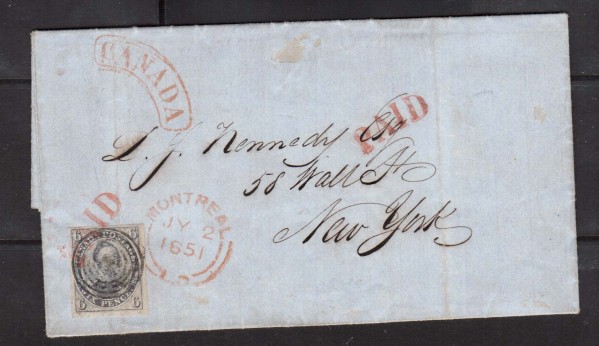 CANADA
PAID
L. J. Kennedy Esq
58 Wall St
New York
PAID
MONTREAL
JY 2
1851
6 CANADA POSTAGE 6
6 SIX PENCE 6